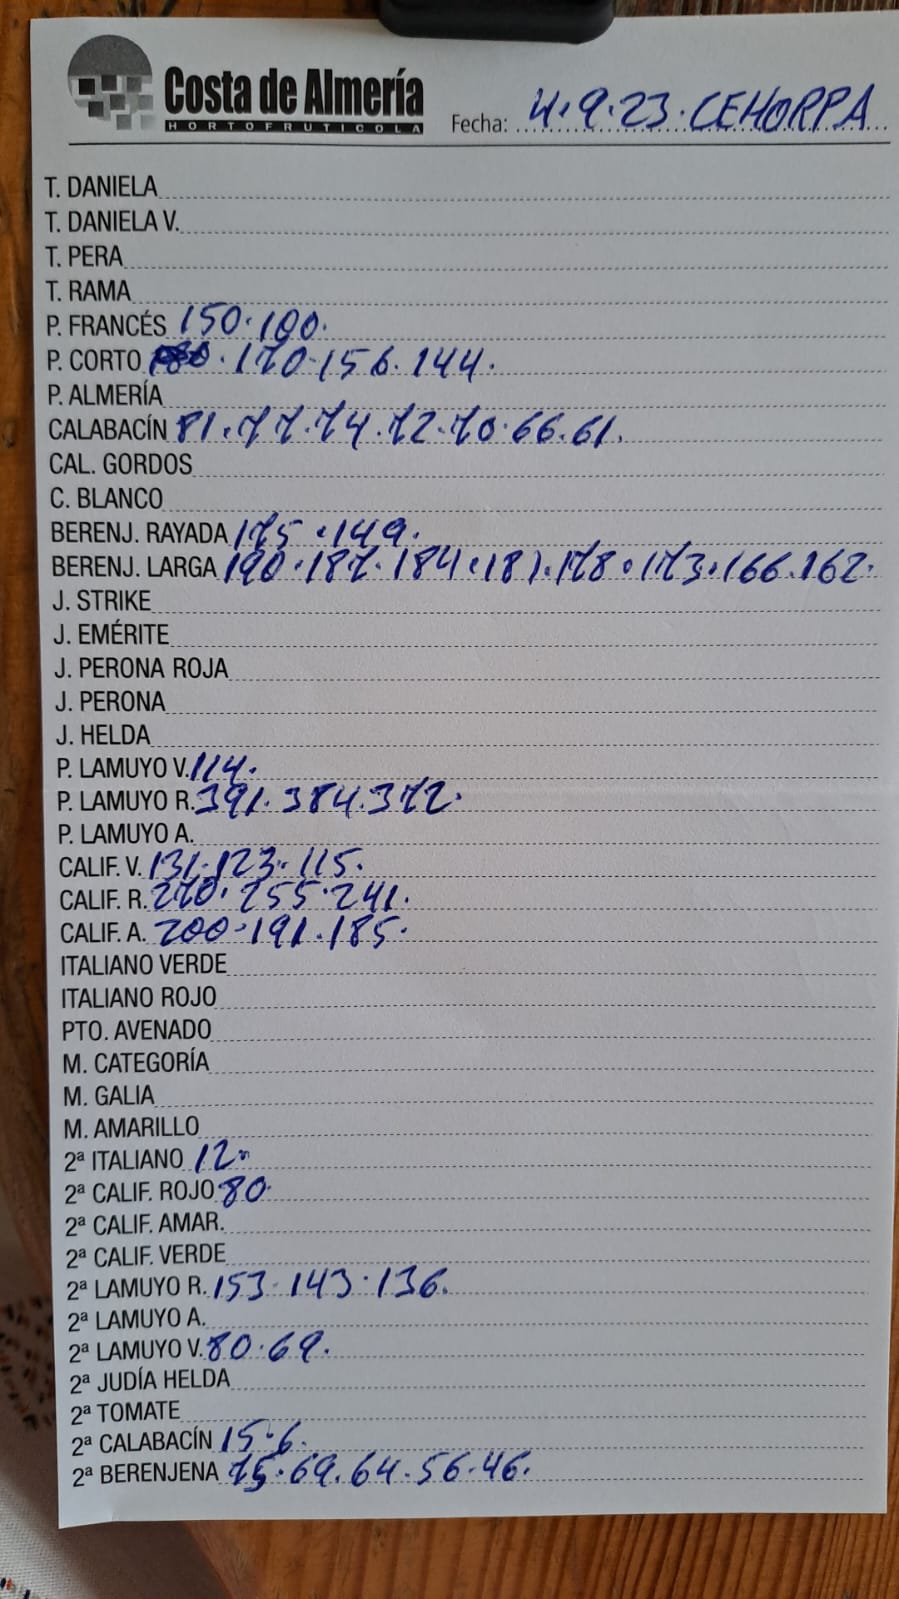 Costa de Almería
HORTOFRUTICOLA
Fecha: 4.9.23. CEHORPA
T. DANIELA
T. DANIELA V.
T. PERA
T. RAMA
P. FRANCÉS 150.100.
P. CORTO . 170.156.144.
P. ALMERÍA
CALABACÍN 81.77.74.72.70.66.61.
CAL. GORDOS
C. BLANCO
BERENJ. RAYADA 175.149.
BERENJ. LARGA 190.187.184.181.178.173.166.162.
J. STRIKE
J. EMÉRITE
J. PERONA ROJA
J. PERONA
J. HELDA
P. LAMUYO V. 114.
P. LAMUYO R. 391.384.372.
P. LAMUYO A.
CALIF. V. 131.123.115.
CALIF. R. 270.255.241.
CALIF. A. 200.191.185.
ITALIANO VERDE
ITALIANO ROJO
PTO. AVENADO
M. CATEGORÍA
M. GALIA
M. AMARILLO
2ª ITALIANO 12.
2ª CALIF. ROJO 80.
2ª CALIF. AMAR.
2ª CALIF. VERDE
2ª LAMUYO R. 153.143.136.
2ª LAMUYO A.
2ª LAMUYO V. 80.69.
2ª JUDÍA HELDA
2ª TOMATE
2ª CALABACÍN 15.6.
2ª BERENJENA 75.69.64.56.46.